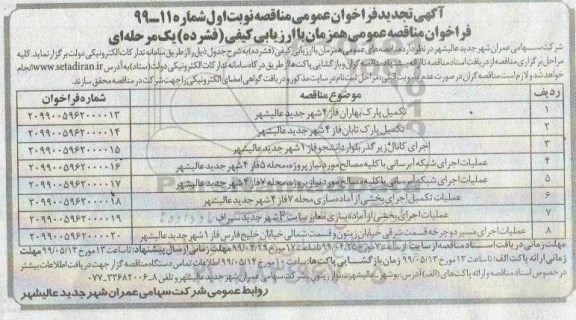 آگهی تجدید فراخوان عمومی مناقصه نوبت اول شماره ۱۱-۹۹
فراخوان مناقصه عمومی همزمان با ارزیابی کیفی (فشرده) یک مرحله‌ای
شرکت سهامی عمران شهر جدید عالیشهر در نظر دارد مناقصه های عمومی همزمان با ارزیابی کیفی (فشرده) به شرح جدول ذیل را از طریق سامانه تدارکات الکترونیکی دولت برگزار نماید. کلیه
مراحل برگزاری مناقصه از دریافت اسناد مناقصه تا ارائه پیشنهاد مناقصه گران و بازگشایی پاکت ها از طریق درگاه سامانه تدارکات الکترونیکی دولت (ستاد) به آدرس www.setadiran.ir انجام
خواهد شد و لازم است مناقصه گران در صورت عدم عضویت قبلی، مراحل ثبت نام در سایت مذکور و دریافت گواهی امضای الکترونیکی را جهت شرکت در مناقصه محقق سازند.
ردیف موضوع مناقصه شماره فراخوان
۱ تکمیل پارک بهاران فاز ۴ شهر جدید عالیشهر ۲۰۹۹۰۰۵۹۶۲۰۰۰۰۱۳
۲ تکمیل پارک تابان فاز ۴ شهر جدید عالیشهر ۲۰۹۹۰۰۵۹۶۲۰۰۰۰۱۴
۳ اجرای کانال زیر گذر بلوار دانشجو فاز ۱ شهر جدید عالیشهر ۲۰۹۹۰۰۵۹۶۲۰۰۰۰۱۵
۴ عملیات اجرای شبکه آبرسانی با کلیه مصالح مورد نیاز پروژه، محله ۵ فاز ۴ شهر جدید عالیشهر ۲۰۹۹۰۰۵۹۶۲۰۰۰۰۱۶
۵ عملیات اجرای شبکه آبرسانی با کلیه مصالح مورد نیاز پروژه، محله ۷ فاز ۴ شهر جدید عالیشهر ۲۰۹۹۰۰۵۹۶۲۰۰۰۰۱۷
۶ عملیات تکمیل اجرای بخشی از آماده سازی محله ۷ فاز ۴ شهر جدید عالیشهر ۲۰۹۹۰۰۵۹۶۲۰۰۰۰۱۸
۷ عملیات اجرای بخشی از آماده سازی معابر سایت ۳ شهر جدید سیراف ۲۰۹۹۰۰۵۹۶۲۰۰۰۰۱۹
۸ عملیات اجرای مسیر دوچرخه قسمت شرقی خیابان زیتون و قسمت شمالی خیابان خلیج فارس فاز ۱ شهر جدید عالیشهر ۲۰۹۹۰۰۵۹۶۲۰۰۰۰۲۰
مهلت زمانی دریافت اسناد مناقصه از سایت: از ساعت مورخ ۹۹/۰۴/۲۵ تا ساعت مورخ ۹۹/۰۴/۲۹ مهلت زمانی ارسال پیشنهاد: تا ساعت ۱۳ مورخ ۹۹/۰۵/۱۳ مهلت
زمانی ارائه پاکت الف: تا ساعت ۱۳ مورخ ۹۹/۰۵/۱۳ زمان بازگشایی پاکت ها: ساعت مورخ ۹۹/۰۵/۱۴ اطلاعات تماس دستگاه مناقصه گزار جهت دریافت اطلاعات بیشتر
در خصوص اسناد مناقصه و ارائه پاکت های (الف): آدرس: بوشهر، عالیشهر، شرکت عمران شهر جدید عالیشهر و تلفن ۸-۳۳۶۸۲۰۰۶-۰۷۷
روابط عمومی شرکت سهامی عمران شهر جدید عالیشهر